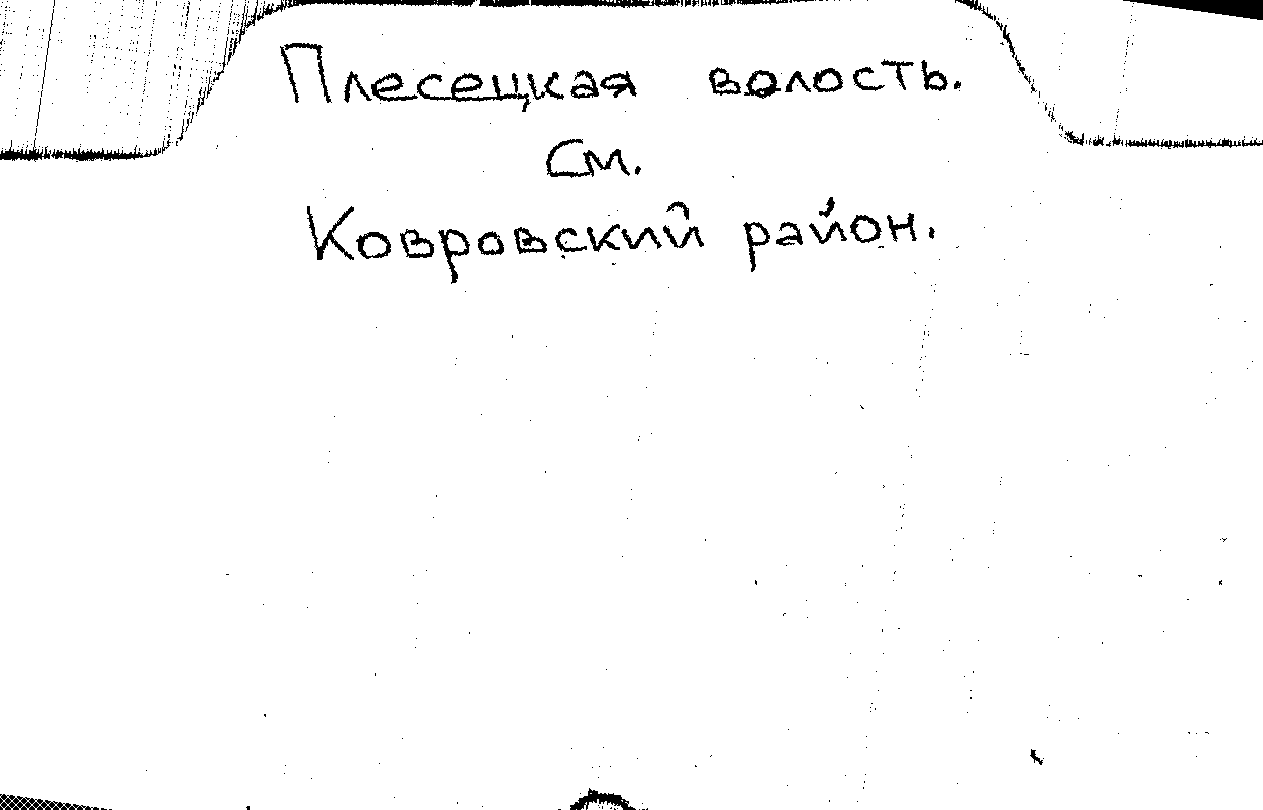 Плесецкая волость.
См.
Ковровский район.